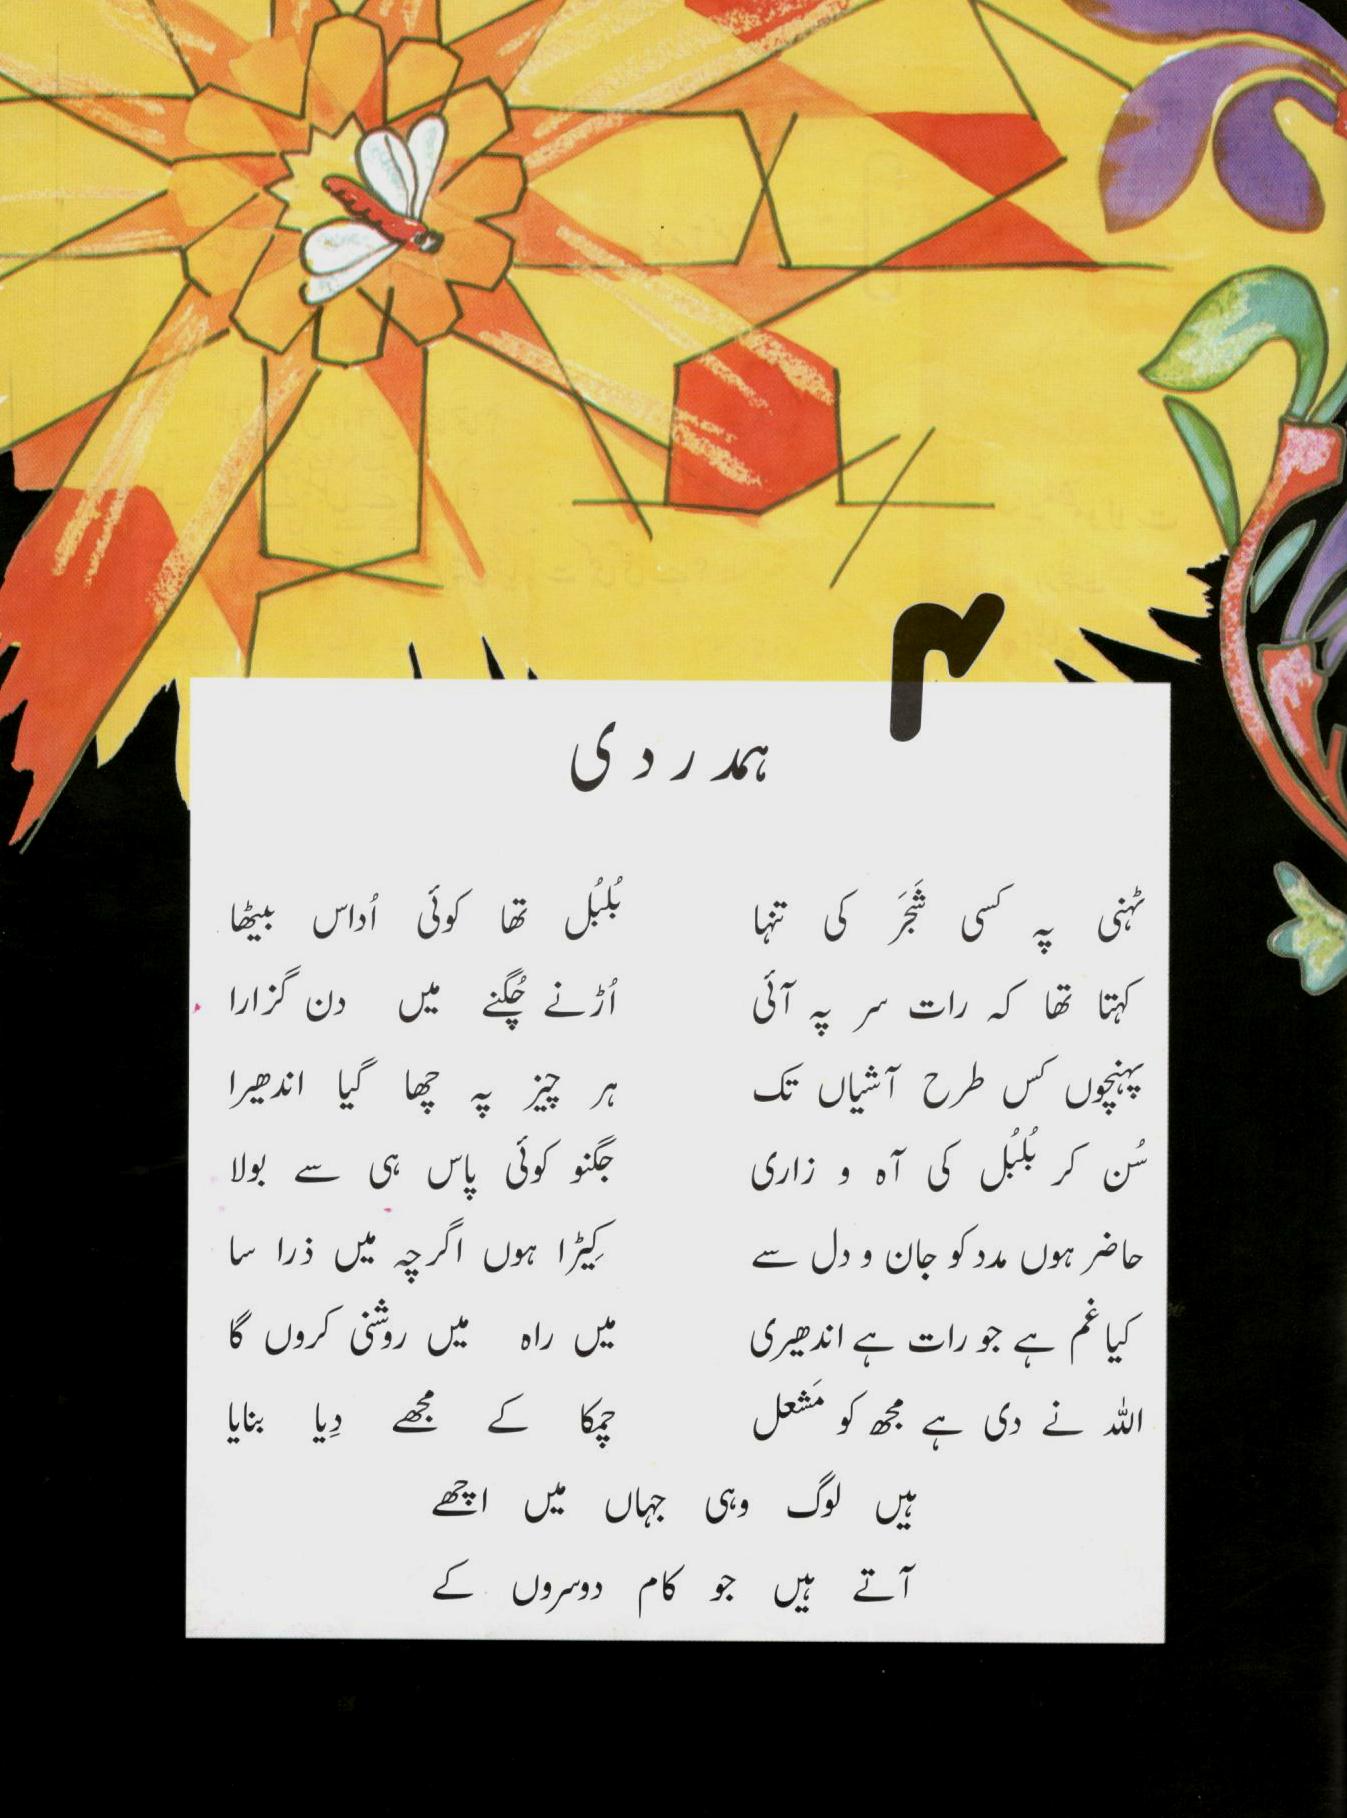 ۴
ہمدردی
ٹہنی پہ کسی شَجَر کی تنہا بُلبُل تھا کوئی اُداس بیٹھا
کہتا تھا کہ رات سر پہ آئی اُڑنے چُگنے میں دن گزارا
پہنچوں کس طرح آشیاں تک ہر چیز پہ چھا گیا اندھیرا
سُن کر بُلبُل کی آہ و زاری جگنو کوئی پاس ہی سے بولا
حاضر ہوں مدد کو جان و دل سے کِیڑا ہوں اگرچہ میں ذرا سا
کیا غم ہے جو رات ہے اندھیری میں راہ میں روشنی کروں گا
اللہ نے دی ہے مجھ کو مَشعل چمکا کے مجھے دِیا بنایا
ہیں لوگ وہی جہاں میں اچھے
آتے ہیں جو کام دوسروں کے